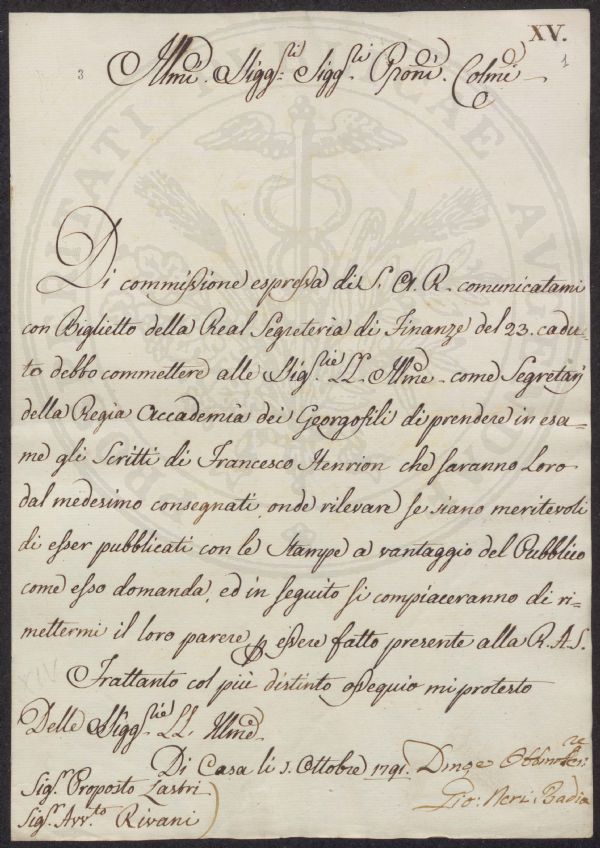 XV.
3
1
Illmi. Sigg:ri Sigg:ri Proni. Colmi.
Di commissione espressa di S. A. R. comunicatami
con Biglietto della Real Segreteria di Finanze del 23. cadu-
to debbo commettere alle Sig:rie LL. Illme. come Segretarj
della Regia Accademia dei Georgofili di prendere in esa-
me gli Scritti di Francesco Henrion che saranno Loro
dal medesimo consegnati onde rilevare se siano meritevoli
di esser pubblicati con le Stampe a vantaggio del Pubblico
come esso domanda, ed in seguito si compiaceranno di ri-
mettermi il loro parere p essere fatto presente alla R. A. S.
XIV
Frattanto col più distinto ossequio mi protesto
Delle Sigg:rie LL. Illme.
Di Casa li Ottobre 1791.
Sig:r Proposto Lastri
Sig:r Avv:to Rivani
Gio: Neri: Badia